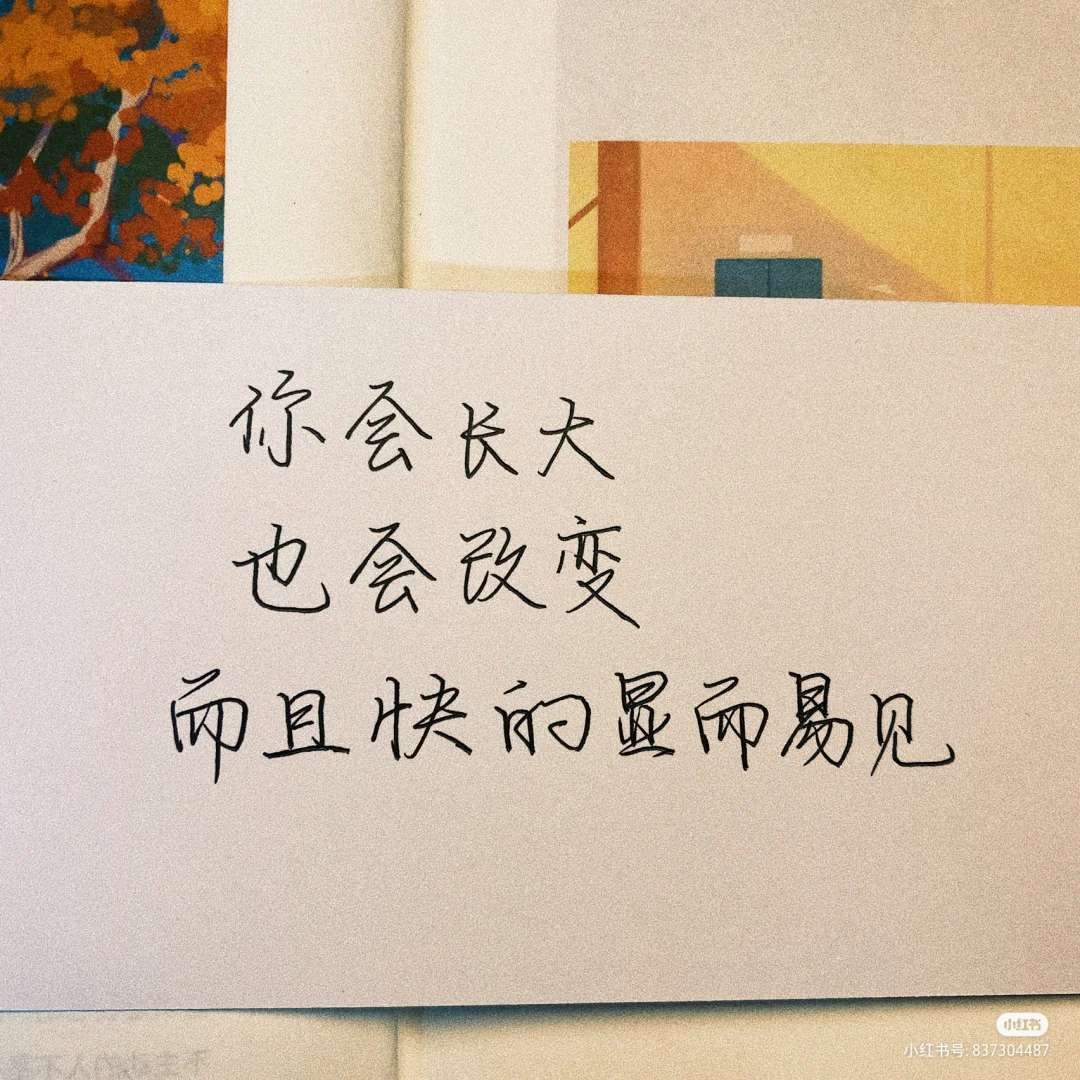 你会长大
也会改变
而且快的显而易见
小红书
小红书号: 837304487